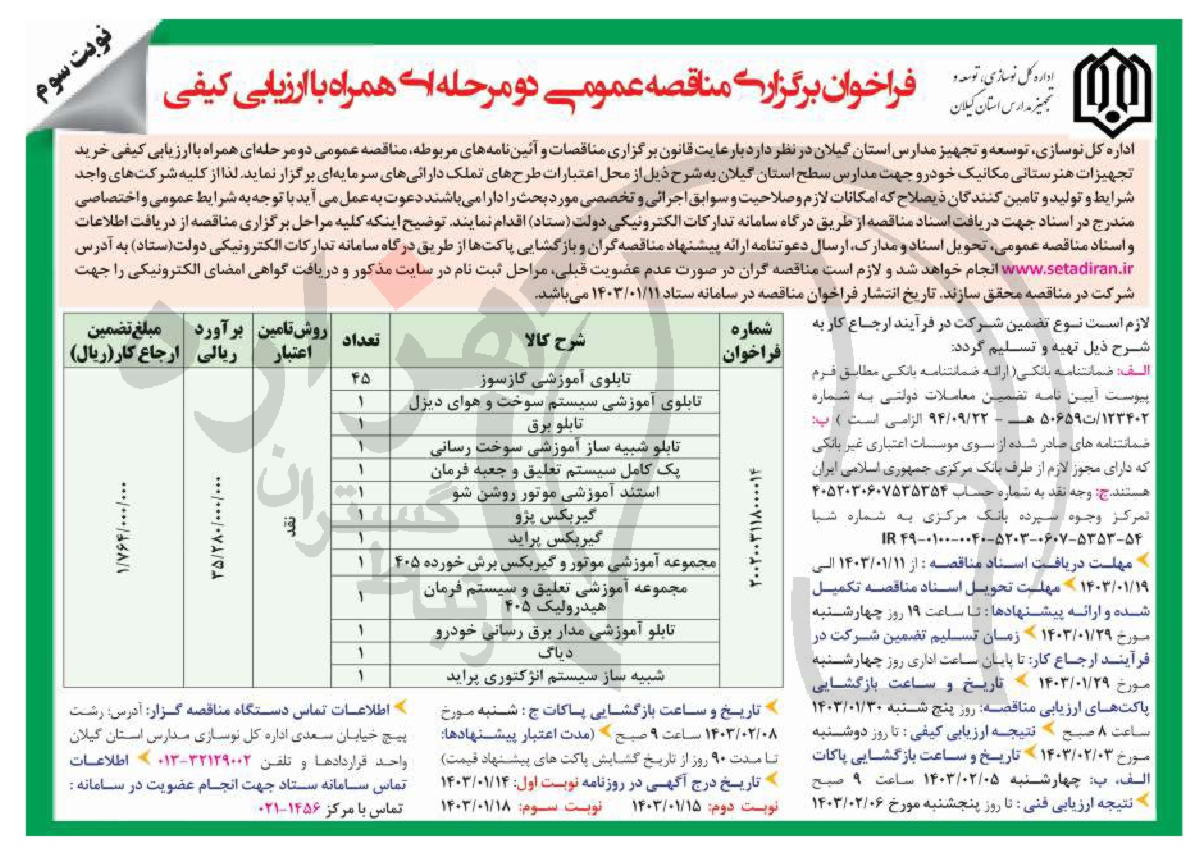 نوبت سوم
اداره کل نوسازی، توسعه و
تجهیز مدارس استان گیلان
فراخوان برگزاری مناقصه عمومی دو مرحله‌ای همراه با ارزیابی کیفی
اداره کل نوسازی، توسعه و تجهیز مدارس استان گیلان در نظر دارد با رعایت قانون برگزاری مناقصات و آئین‌نامه‌های مربوطه، مناقصه عمومی دو مرحله‌ای همراه با ارزیابی کیفی خرید
تجهیزات هنرستانی مکانیک خودرو جهت مدارس سطح استان گیلان به شرح ذیل از محل اعتبارات طرح‌های تملک دارائی‌های سرمایه‌ای برگزار نماید. لذا از کلیه شرکت‌های واجد
شرایط و تولید و تامین کنندگان ذیصلاح که امکانات لازم و صلاحیت و سوابق اجرائی و تخصصی مورد بحث را دارا می‌باشند دعوت به عمل می آید با توجه به شرایط عمومی و اختصاصی
مندرج در اسناد جهت دریافت اسناد مناقصه از طریق درگاه سامانه تدارکات الکترونیکی دولت(ستاد) اقدام نمایند. توضیح اینکه کلیه مراحل برگزاری مناقصه از دریافت اطلاعات
و اسناد مناقصه عمومی، تحویل اسناد و مدارک، ارسال دعوتنامه ارائه پیشنهاد مناقصه‌گران و بازگشایی پاکت‌ها از طریق درگاه سامانه تدارکات الکترونیکی دولت(ستاد) به آدرس
www.setadiran.ir انجام خواهد شد و لازم است مناقصه گران در صورت عدم عضویت قبلی، مراحل ثبت نام در سایت مذکور و دریافت گواهی امضای الکترونیکی را جهت
شرکت در مناقصه محقق سازند. تاریخ انتشار فراخوان مناقصه در سامانه ستاد ۱۴۰۳/۰۱/۱۱ می‌باشد.
لازم است نوع تضمین شرکت در فرآیند ارجاع کار به
شرح ذیل تهیه و تسلیم گردد:
الف: ضمانتنامه بانکی( ارائه ضمانتنامه بانکی مطابق فرم
پیوست آیین نامه تضمین معاملات دولتی به شماره
۱۲۳۴۰۲/ت۵۰۶۵۹ هـ - ۹۴/۰۹/۲۲ الزامی است ) ب:
ضمانتنامه های صادر شده از سوی موسسات اعتباری غیر بانکی
که دارای مجوز لازم از طرف بانک مرکزی جمهوری اسلامی ایران
هستند.ج: وجه نقد به شماره حساب ۴۰۵۲۰۳۰۶۰۷۵۳۵۳۵۴
تمرکز وجوه سپرده بانک مرکزی به شماره شبا
IR ۴۹-۰۱۰۰-۰۰۴۰-۵۲۰۳-۰۶۰۷-۵۳۵۳-۵۴
مهلت دریافت اسناد مناقصه : از ۱۴۰۳/۰۱/۱۱ الی
۱۴۰۳/۰۱/۱۹ مهلت تحویل اسناد مناقصه تکمیل
شده و ارائه پیشنهادها : تا ساعت ۱۹ روز چهارشنبه
مورخ ۱۴۰۳/۰۱/۲۹ زمان تسلیم تضمین شرکت در
فرآیند ارجاع کار: تا پایان ساعت اداری روز چهارشنبه
مورخ ۱۴۰۳/۰۱/۲۹ تاریخ و ساعت بازگشایی
پاکت‌های ارزیابی مناقصه: روز پنج شنبه ۱۴۰۳/۰۱/۳۰
ساعت ۸ صبح نتیجه ارزیابی کیفی : تا روز دوشنبه
مورخ ۱۴۰۳/۰۲/۰۳ تاریخ و ساعت بازگشایی پاکات
الف، ب: چهارشنبه ۱۴۰۳/۰۲/۰۵ ساعت ۹ صبح
نتیجه ارزیابی فنی : تا روز پنجشنبه مورخ ۱۴۰۳/۰۲/۰۶
شماره فراخوان | شرح کالا | تعداد | روش تامین اعتبار | برآورد ریالی | مبلغ تضمین ارجاع کار (ریال)
تابلوی آموزشی گازسوز ۴۵
تابلوی آموزشی سیستم سوخت و هوای دیزل ۱
تابلو برق ۱
تابلو شبیه ساز آموزشی سوخت رسانی ۱
پک کامل سیستم تعلیق و جعبه فرمان ۱
استند آموزشی موتور روشن شو ۱
گیربکس پژو ۱
گیربکس پراید ۱
مجموعه آموزشی موتور و گیربکس برش خورده ۴۰۵ ۱
مجموعه آموزشی تعلیق و سیستم فرمان
هیدرولیک ۴۰۵ ۱
تابلو آموزشی مدار برق رسانی خودرو ۱
دیاگ ۱
شبیه ساز سیستم انژکتوری پراید ۱
۲۰۰۲۰۰۳۱۱۸۰۰۰۰۱۴
نقد
۳۵/۲۸۰/۰۰۰/۰۰۰
۱/۷۶۴/۰۰۰/۰۰۰
تاریخ و ساعت بازگشایی پاکات ج : شنبه مورخ
۱۴۰۳/۰۲/۰۸ ساعت ۹ صبح (مدت اعتبار پیشنهادها:
تا مدت ۹۰ روز از تاریخ گشایش پاکت های پیشنهاد قیمت)
تاریخ درج آگهی در روزنامه نوبت اول: ۱۴۰۳/۰۱/۱۴
نوبت دوم: ۱۴۰۳/۰۱/۱۵ نوبت سوم: ۱۴۰۳/۰۱/۱۸
اطلاعات تماس دستگاه مناقصه گزار: آدرس: رشت
پیچ خیابان سعدی اداره کل نوسازی مدارس استان گیلان
واحد قراردادها و تلفن ۳۲۱۲۹۰۰۲-۰۱۳ اطلاعات
تماس سامانه ستاد جهت انجام عضویت در سامانه :
تماس با مرکز ۱۴۵۶-۰۲۱
هزاره
گستران
ارتباط